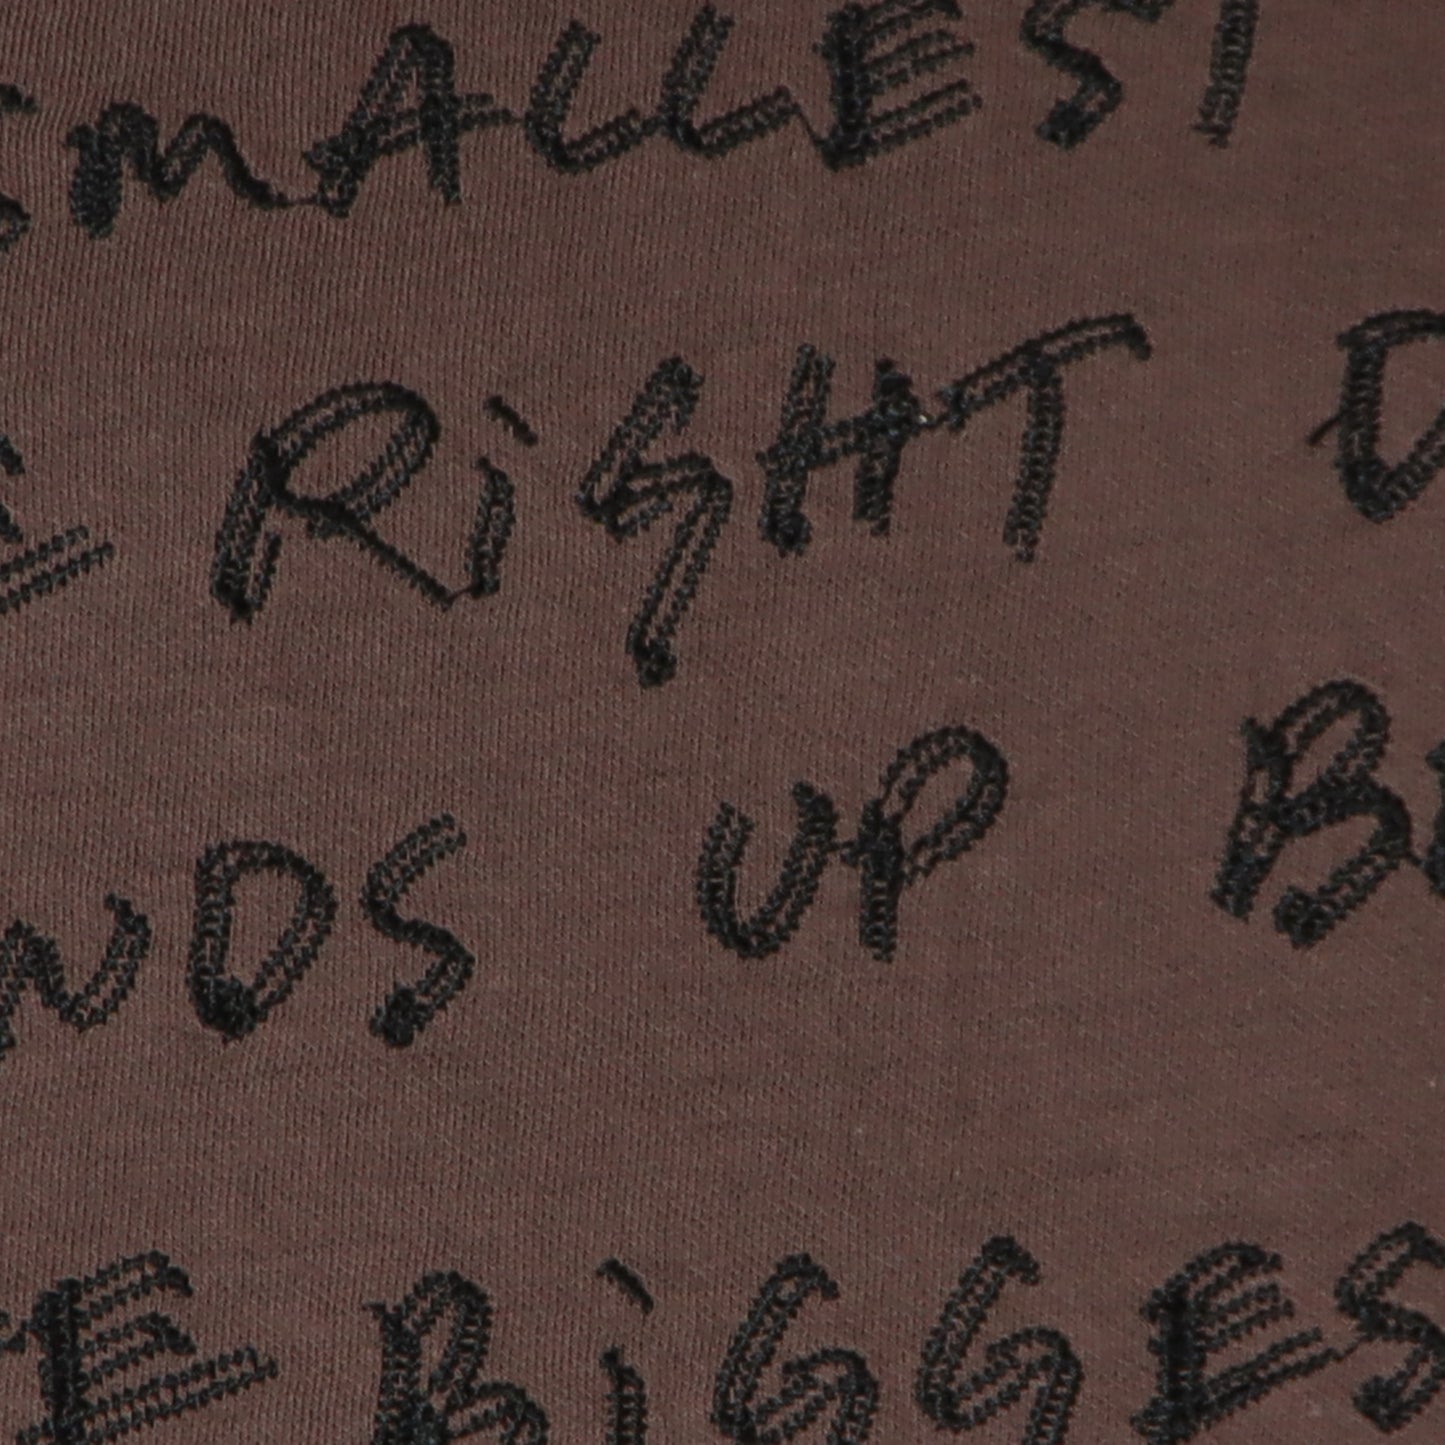 SMALLEST
E RiGHT D
NDS UP B
E BiGGES